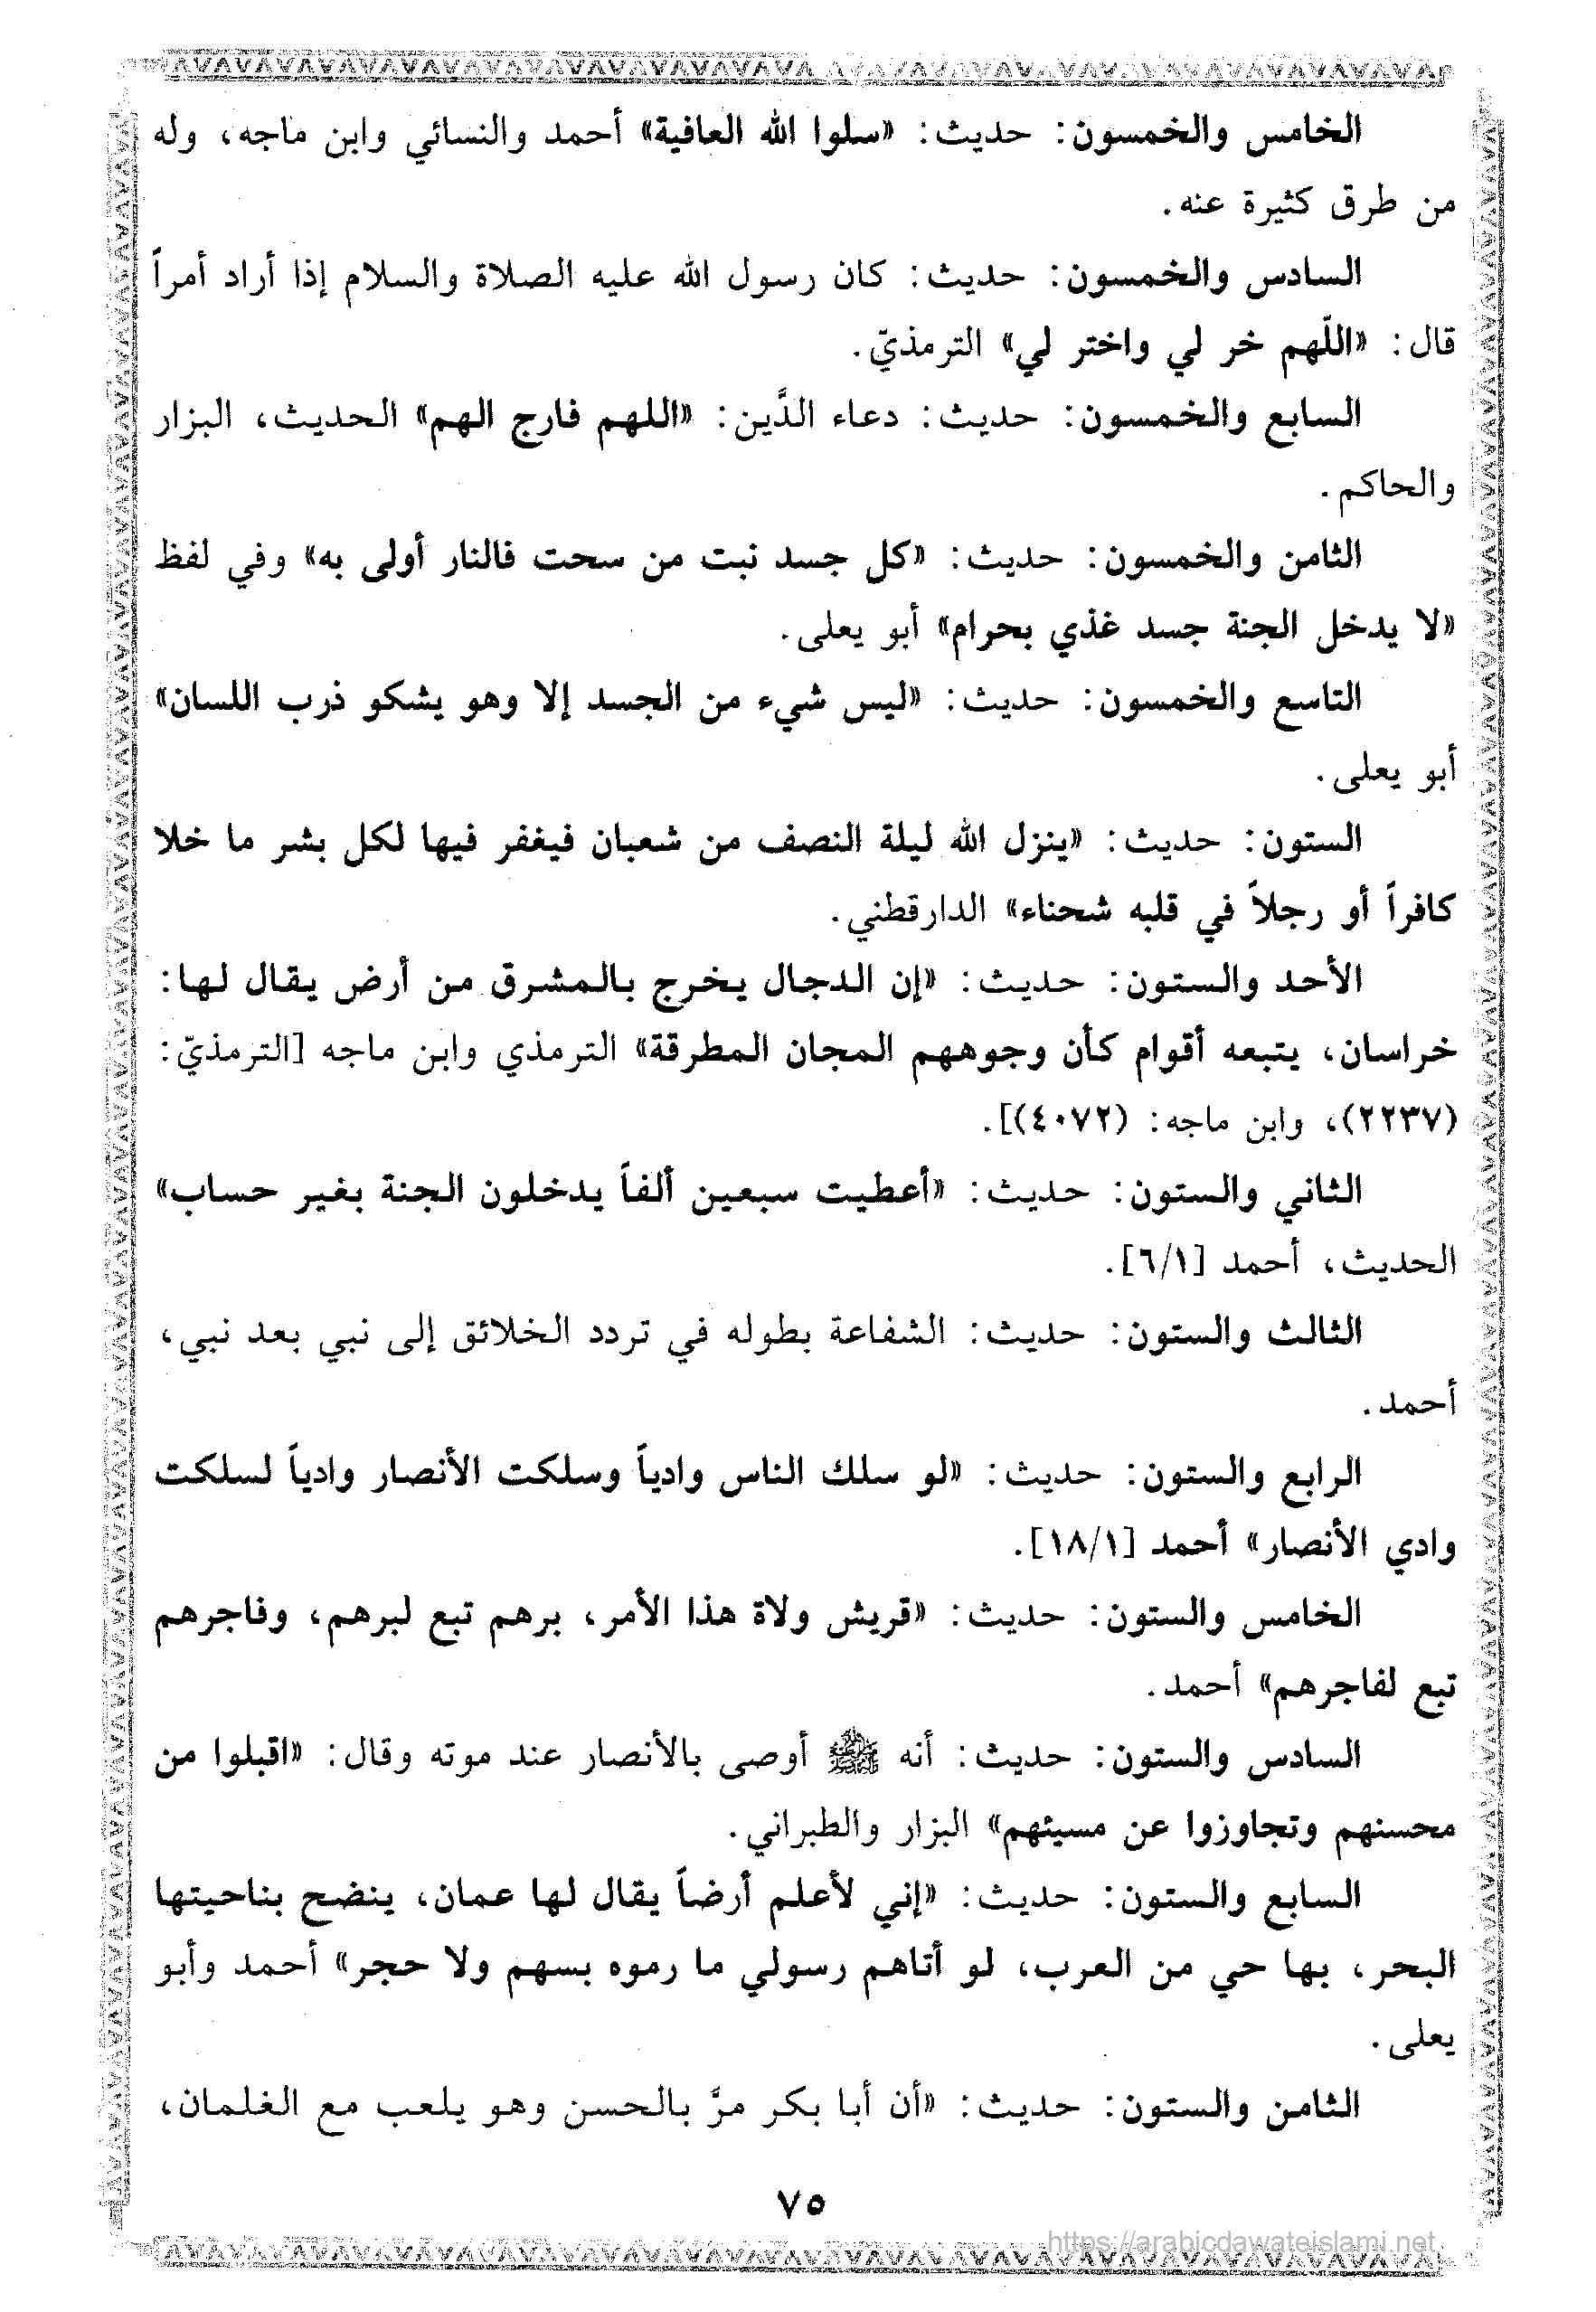 الخامس والخمسون: حديث: «سلوا الله العافية» أحمد والنسائي وابن ماجه، وله
من طرق كثيرة عنه.
السادس والخمسون: حديث: كان رسول الله عليه الصلاة والسلام إذا أراد أمراً
قال: «اللّهم خر لي واختر لي» الترمذيّ.
السابع والخمسون: حديث: دعاء الدَّين: «اللهم فارج الهم» الحديث، البزار
والحاكم.
الثامن والخمسون: حديث: «كل جسد نبت من سحت فالنار أولى به» وفي لفظ
«لا يدخل الجنة جسد غذي بحرام» أبو يعلى.
التاسع والخمسون: حديث: «ليس شيء من الجسد إلا وهو يشكو ذرب اللسان»
أبو يعلى.
الستون: حديث: «ينزل الله ليلة النصف من شعبان فيغفر فيها لكل بشر ما خلا
كافراً أو رجلاً في قلبه شحناء» الدارقطني.
الأحد والستون: حديث: «إن الدجال يخرج بالمشرق من أرض يقال لها:
خراسان، يتبعه أقوام كأن وجوههم المجان المطرقة» الترمذي وابن ماجه [الترمذيّ:
(٢٢٣٧)، وابن ماجه: (٤٠٧٢)].
الثاني والستون: حديث: «أعطيت سبعين ألفاً يدخلون الجنة بغير حساب»
الحديث، أحمد [٦/١].
الثالث والستون: حديث: الشفاعة بطوله في تردد الخلائق إلى نبي بعد نبي،
أحمد.
الرابع والستون: حديث: «لو سلك الناس وادياً وسلكت الأنصار وادياً لسلكت
وادي الأنصار» أحمد [١٨/١].
الخامس والستون: حديث: «قريش ولاة هذا الأمر، برهم تبع لبرهم، وفاجرهم
تبع لفاجرهم» أحمد.
السادس والستون: حديث: أنه ﷺ أوصى بالأنصار عند موته وقال: «اقبلوا من
محسنهم وتجاوزوا عن مسيئهم» البزار والطبراني.
السابع والستون: حديث: «إني لأعلم أرضاً يقال لها عمان، ينضح بناحيتها
البحر، بها حي من العرب، لو أتاهم رسولي ما رموه بسهم ولا حجر» أحمد وأبو
يعلى.
الثامن والستون: حديث: «أن أبا بكر مرَّ بالحسن وهو يلعب مع الغلمان،
٧٥
https://arabicdawateislami.net